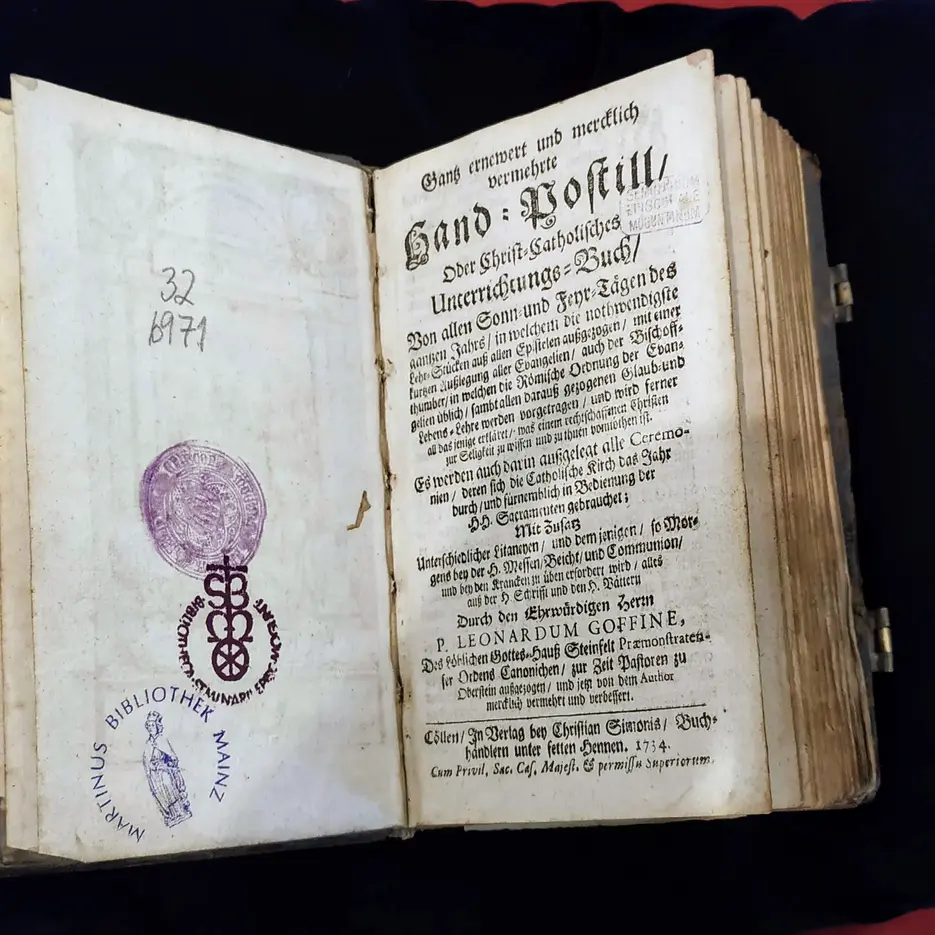 32
6971
BIBLIOTHEK
MARTINUS
MAINZ
Gantz ernewert und mercklich
vermehrte
Hand-Postill/
Oder Christ-Catholisches
Unterrichtungs-Buch/
Von allen Sonn-und Feyr-Tägen des
gantzen Jahrs/ in welchem die nothwendigste
Lehr-Stücken auß allen Epistelen außgezogen/ mit einer
kurtzen Außlegung aller Evangelien/ auch der Bischoff-
thumber/ in welchen die Römische Ordnung der Evan-
gelien üblich/ sambt allen darauß gezogenen Glaub-und
Lebens-Lehre werden vorgetragen/ und wird ferner
all das jenige erkläret/ was einem rechtschaffenen Christen
zur Seligkeit zu wissen und zu thuen vonnöthen ist.
Es werden auch darin außgelegt alle Ceremo-
nien/ deren sich die Catholische Kirch das Jahr
durch/ und fürnemblich in Bedienung der
HH. Sacramenten gebrauchet;
Mit Zusatz
Unterschiedlicher Litaneyen/ und dem jenigen/ so Mor-
gens bey der H. Messen/ Beicht/ und Communion/
und bey den Krancken zu üben erfordert wird/ alles
auß der H. Schrifft und den H. Vättern
Durch den Ehrwürdigen Herrn
P. LEONARDUM GOFFINE,
Des Löblichen Gottes-Hauß Steinfelt Præmonstraten-
ser Ordens Canonichen/ zur Zeit Pastoren zu
Oberstein außgezogen/ und jetzt von dem Author
mercklich vermehrt und verbessert.
Cöllen/ In Verlag bey Christian Simonis/ Buch-
händlern unter fetten Hennen. 1734.
Cum Privil. Sac. Cæs. Majest. & permissu Superiorum.
SEMINARIUM
EPISCOPALE
MOGUNTINUM